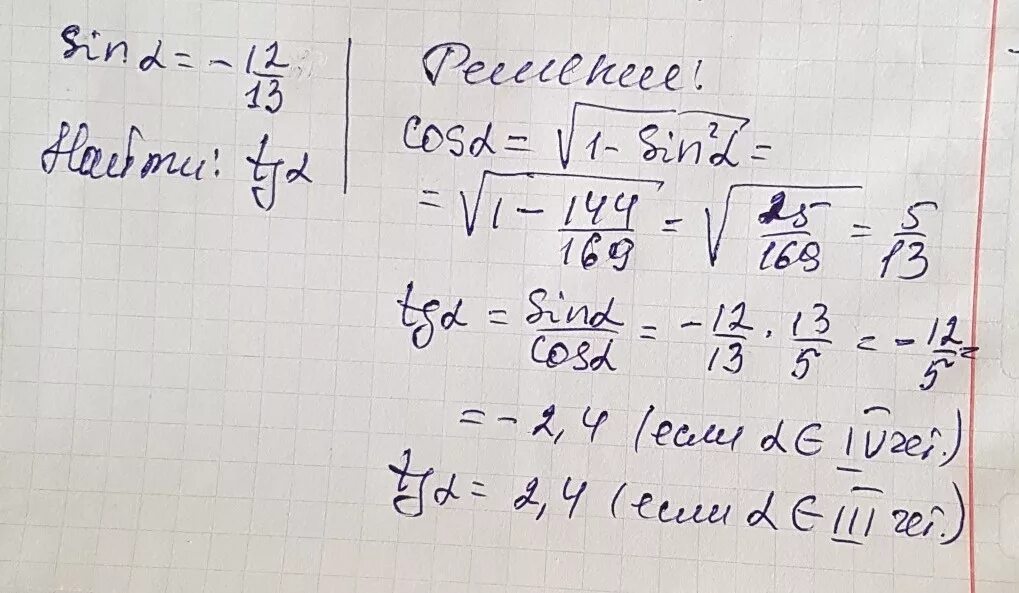 sin α = -12/13
Найти: tg α
Решение:
cos α = √(1 - sin²α) =
= √(1 - 144/169) = √(25/169) = 5/13
tg α = sin α/cos α = -12/13 · 13/5 = -12/5 =
= -2,4 (если α ∈ IV чет.)
tg α = 2,4 (если α ∈ III чет.)